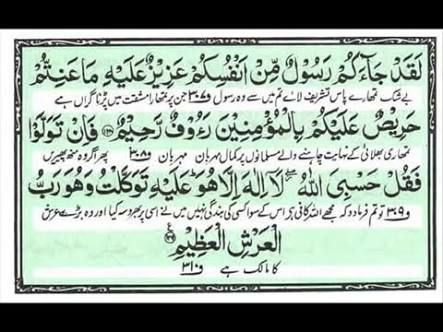 لَقَدْ جَآءَكُمْ رَسُوْلٌ مِّنْ اَنْفُسِكُمْ عَزِيْزٌ عَلَيْهِ مَا عَنِتُّمْ
بے شک تمھارے پاس تشریف لائے تم میں سے وہ رسول ف۳۰۷ جن پر تمھارا مشقت میں پڑنا گراں ہے
حَرِيْصٌ عَلَيْكُمْ بِالْمُؤْمِنِيْنَ رَءُوْفٌ رَّحِيْمٌ ۝۱۲۸ فَاِنْ تَوَلَّوْا
تمھاری بھلائی کے نہایت چاہنے والے مسلمانوں پر کمال مہربان مہربان ف۳۰۸ پھر اگر وہ منھ پھیریں
فَقُلْ حَسْبِيَ اللهُ لَآ اِلٰهَ اِلَّا هُوَ عَلَيْهِ تَوَكَّلْتُ وَهُوَ رَبُّ
ف۳۰۹ تو تم فرما دو کہ مجھے اللہ کافی ہے اس کے سوا کسی کی بندگی نہیں میں نے اسی پر بھروسہ کیا اور وہ بڑے عرش
الْعَرْشِ الْعَظِيْمِ
کا مالک ہے ف۳۱۰